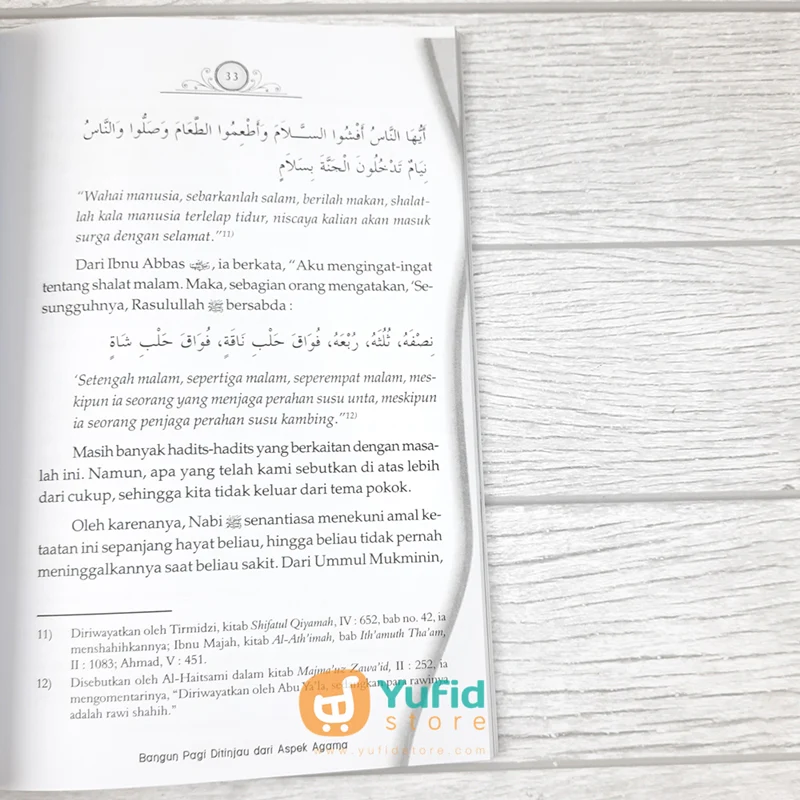 33
أَيُّهَا النَّاسُ أَفْشُوا السَّـــلَامَ وَأَطْعِمُوا الطَّعَامَ وَصَلُّوا وَالنَّاسُ
نِيَامٌ تَدْخُلُونَ الْجَنَّةَ بِسَلَامٍ
“Wahai manusia, sebarkanlah salam, berilah makan, shalat-
lah kala manusia terlelap tidur, niscaya kalian akan masuk
surga dengan selamat.”11)
Dari Ibnu Abbas , ia berkata, “Aku mengingat-ingat
tentang shalat malam. Maka, sebagian orang mengatakan, ‘Se-
sungguhnya, Rasulullah ﷺ bersabda :
نِصْفَهُ، ثُلُثَهُ، رُبْعَهُ، فُوَاقَ حَلْبِ نَاقَةٍ، فُوَاقَ حَلْبِ شَاةٍ
‘Setengah malam, sepertiga malam, seperempat malam, mes-
kipun ia seorang yang menjaga perahan susu unta, meskipun
ia seorang penjaga perahan susu kambing.”12)
Masih banyak hadits-hadits yang berkaitan dengan masa-
lah ini. Namun, apa yang telah kami sebutkan di atas lebih
dari cukup, sehingga kita tidak keluar dari tema pokok.
Oleh karenanya, Nabi ﷺ senantiasa menekuni amal ke-
taatan ini sepanjang hayat beliau, hingga beliau tidak pernah
meninggalkannya saat beliau sakit. Dari Ummul Mukminin,
11) Diriwayatkan oleh Tirmidzi, kitab Shifatul Qiyamah, IV : 652, bab no. 42, ia
menshahihkannya; Ibnu Majah, kitab Al-Ath’imah, bab Ith’amuth Tha’am,
II : 1083; Ahmad, V : 451.
12) Disebutkan oleh Al-Haitsami dalam kitab Majma’uz Zawa’id, II : 252, ia
mengomentarinya, “Diriwayatkan oleh Abu Ya’la, para rawinya
adalah rawi shahih.”
Bangun Pagi Ditinjau dari Aspek Agama
Yufid
store
www.yufidstore.com